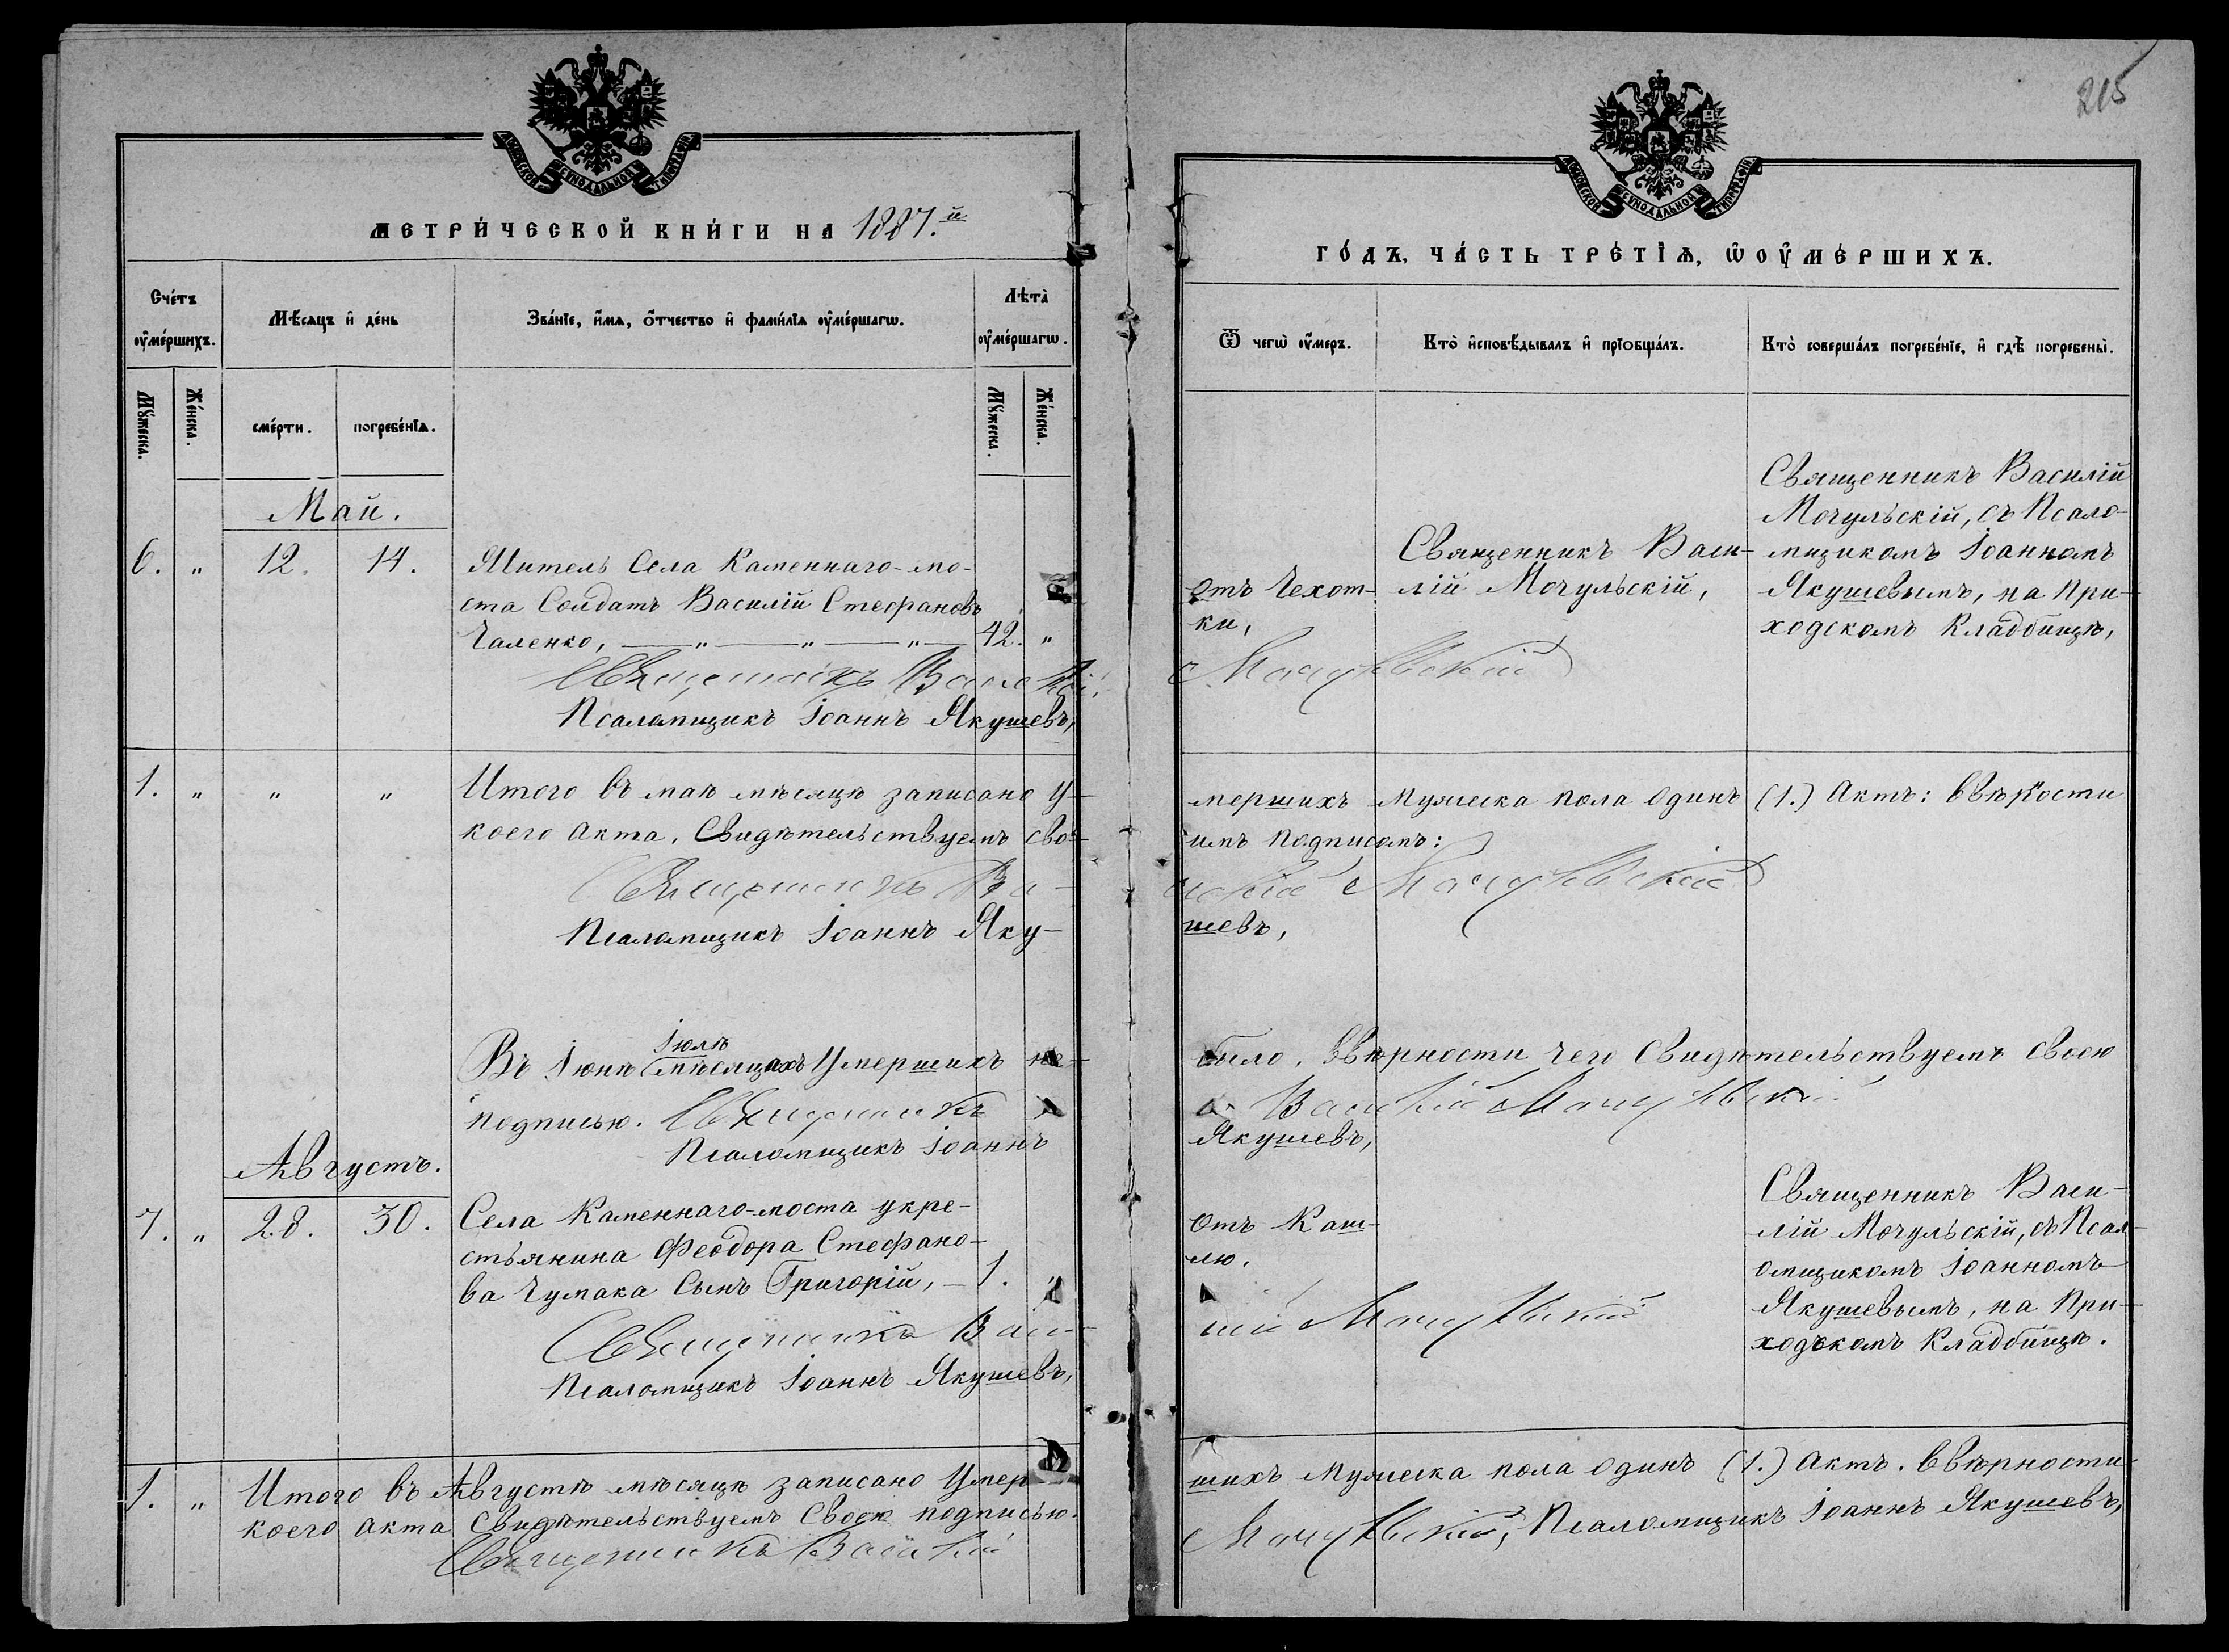 215
МОСКОВСКОЙ СѴНОДАЛЬНОЙ ТИПОГРАФІИ
МОСКОВСКОЙ СѴНОДАЛЬНОЙ ТИПОГРАФІИ
МЕТРИ́ЧЕСКОЙ КНИ́ГИ НА 1887.й
ГО́ДЪ, ЧА́СТЬ ТРЕ́ТІѦ, Ѡ ОУМЕ́РШИХЪ.
Сче́тъ оуме́ршихъ.
Мѣ́сяцъ и де́нь
Зва́нїе, и́мѧ, о́тчество и фами́лїѧ оуме́ршагѡ.
Лѣта̀ оуме́ршагѡ.
Ѿ чегѡ̀ оу́меръ.
Кто̀ исповѣ́дывалъ и прїобща́лъ.
Кто̀ соверша́лъ погребе́нїе, и гдѣ̀ погребены̀.
Мꙋ́жеска.
Же́нска.
сме́рти.
погребе́нїѧ.
Мꙋ́жеска.
Же́нска.
Май.
6. „ 12. 14.
Житель Села Каменнаго-мо-
ста Солдатъ Василій Стефановъ
Чаленко, — „ — „ — „ — 42. „
Священникъ Василій
Псаломщикъ Іоаннъ Якушевъ,
Отъ Чехот-
ки,
Мочульскій
Священникъ Васи-
лій Мочульскій,
Священникъ Василій
Мочульскій, съ Псало-
мщикомъ Іоанномъ
Якушевымъ, на При-
ходскомъ Кладбищѣ,
1. „ „ „
Итого въ маѣ мѣсяцѣ записано у-
мершихъ Мужеска пола Одинъ (1.) Актъ: ввѣрности
коего Акта, Свидѣтельствуемъ сво-
имъ подписомъ:
Священникъ Ва-
силій Мочульскій
Псаломщикъ Іоаннъ Яку-
шевъ,
Іюлѣ
Въ Іюнѣ мѣсяцахъ Умершихъ не-
было. Ввѣрности чего Свидѣтельствуемъ своею
подписью. Священникъ
Василій Мочульскій
Псаломщикъ Іоаннъ
Якушевъ,
Августъ.
7. „ 28. 30.
Села Каменнаго-моста укре-
стьянина Феодора Стефано-
ва Чумака Сынъ Григорій, — 1. „
Священникъ Васи-
Псаломщикъ Іоаннъ Якушевъ,
Отъ Каш-
лю.
лій Мочульскій
Священникъ Васи-
лій Мочульскій, съ Псал-
омщикомъ Іоанномъ
Якушевымъ, на При-
ходскомъ Кладбищѣ.
1. „ Итого въ Августѣ мѣсяцѣ записано Умер
шихъ Мужеска пола Одинъ (1.) Актъ. ввѣрности
коего Акта Свидѣтельствуемъ Своею подписью.
Священникъ Василій
Мочульскій, Псаломщикъ Іоаннъ Якушевъ,